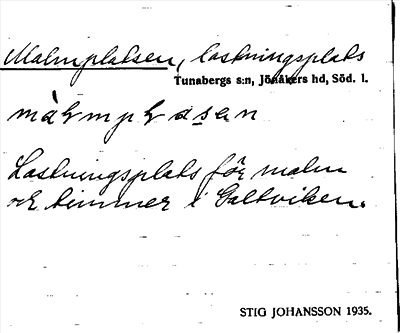 Malmplatsen, lastningsplats
Tunabergs s:n, Jönåkers hd, Söd. l.
Lastningsplats för malm
och timmer i Galtviken.
STIG JOHANSSON 1935.